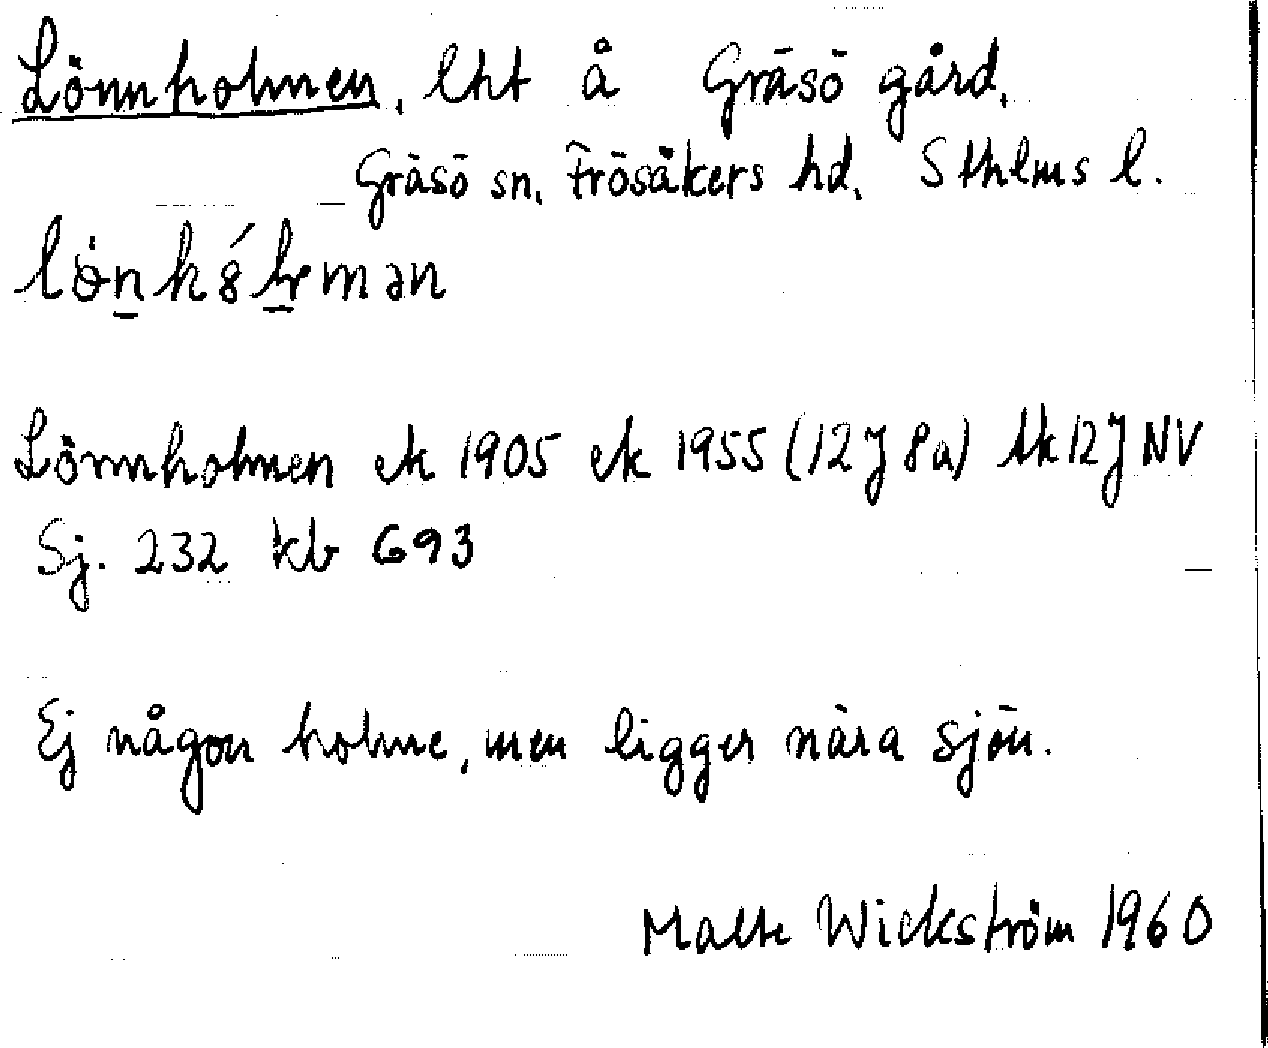 Lönnholmen, lht å Gräsö gård,
Gräsö sn, Frösåkers hd, Sthlms l.
Lönnholmen ek 1905 ek 1955 (12J 8a) tk12J NV
Sj. 232 kb 693
Ej någon holme, men ligger nära sjön.
Malte Wickström 1960